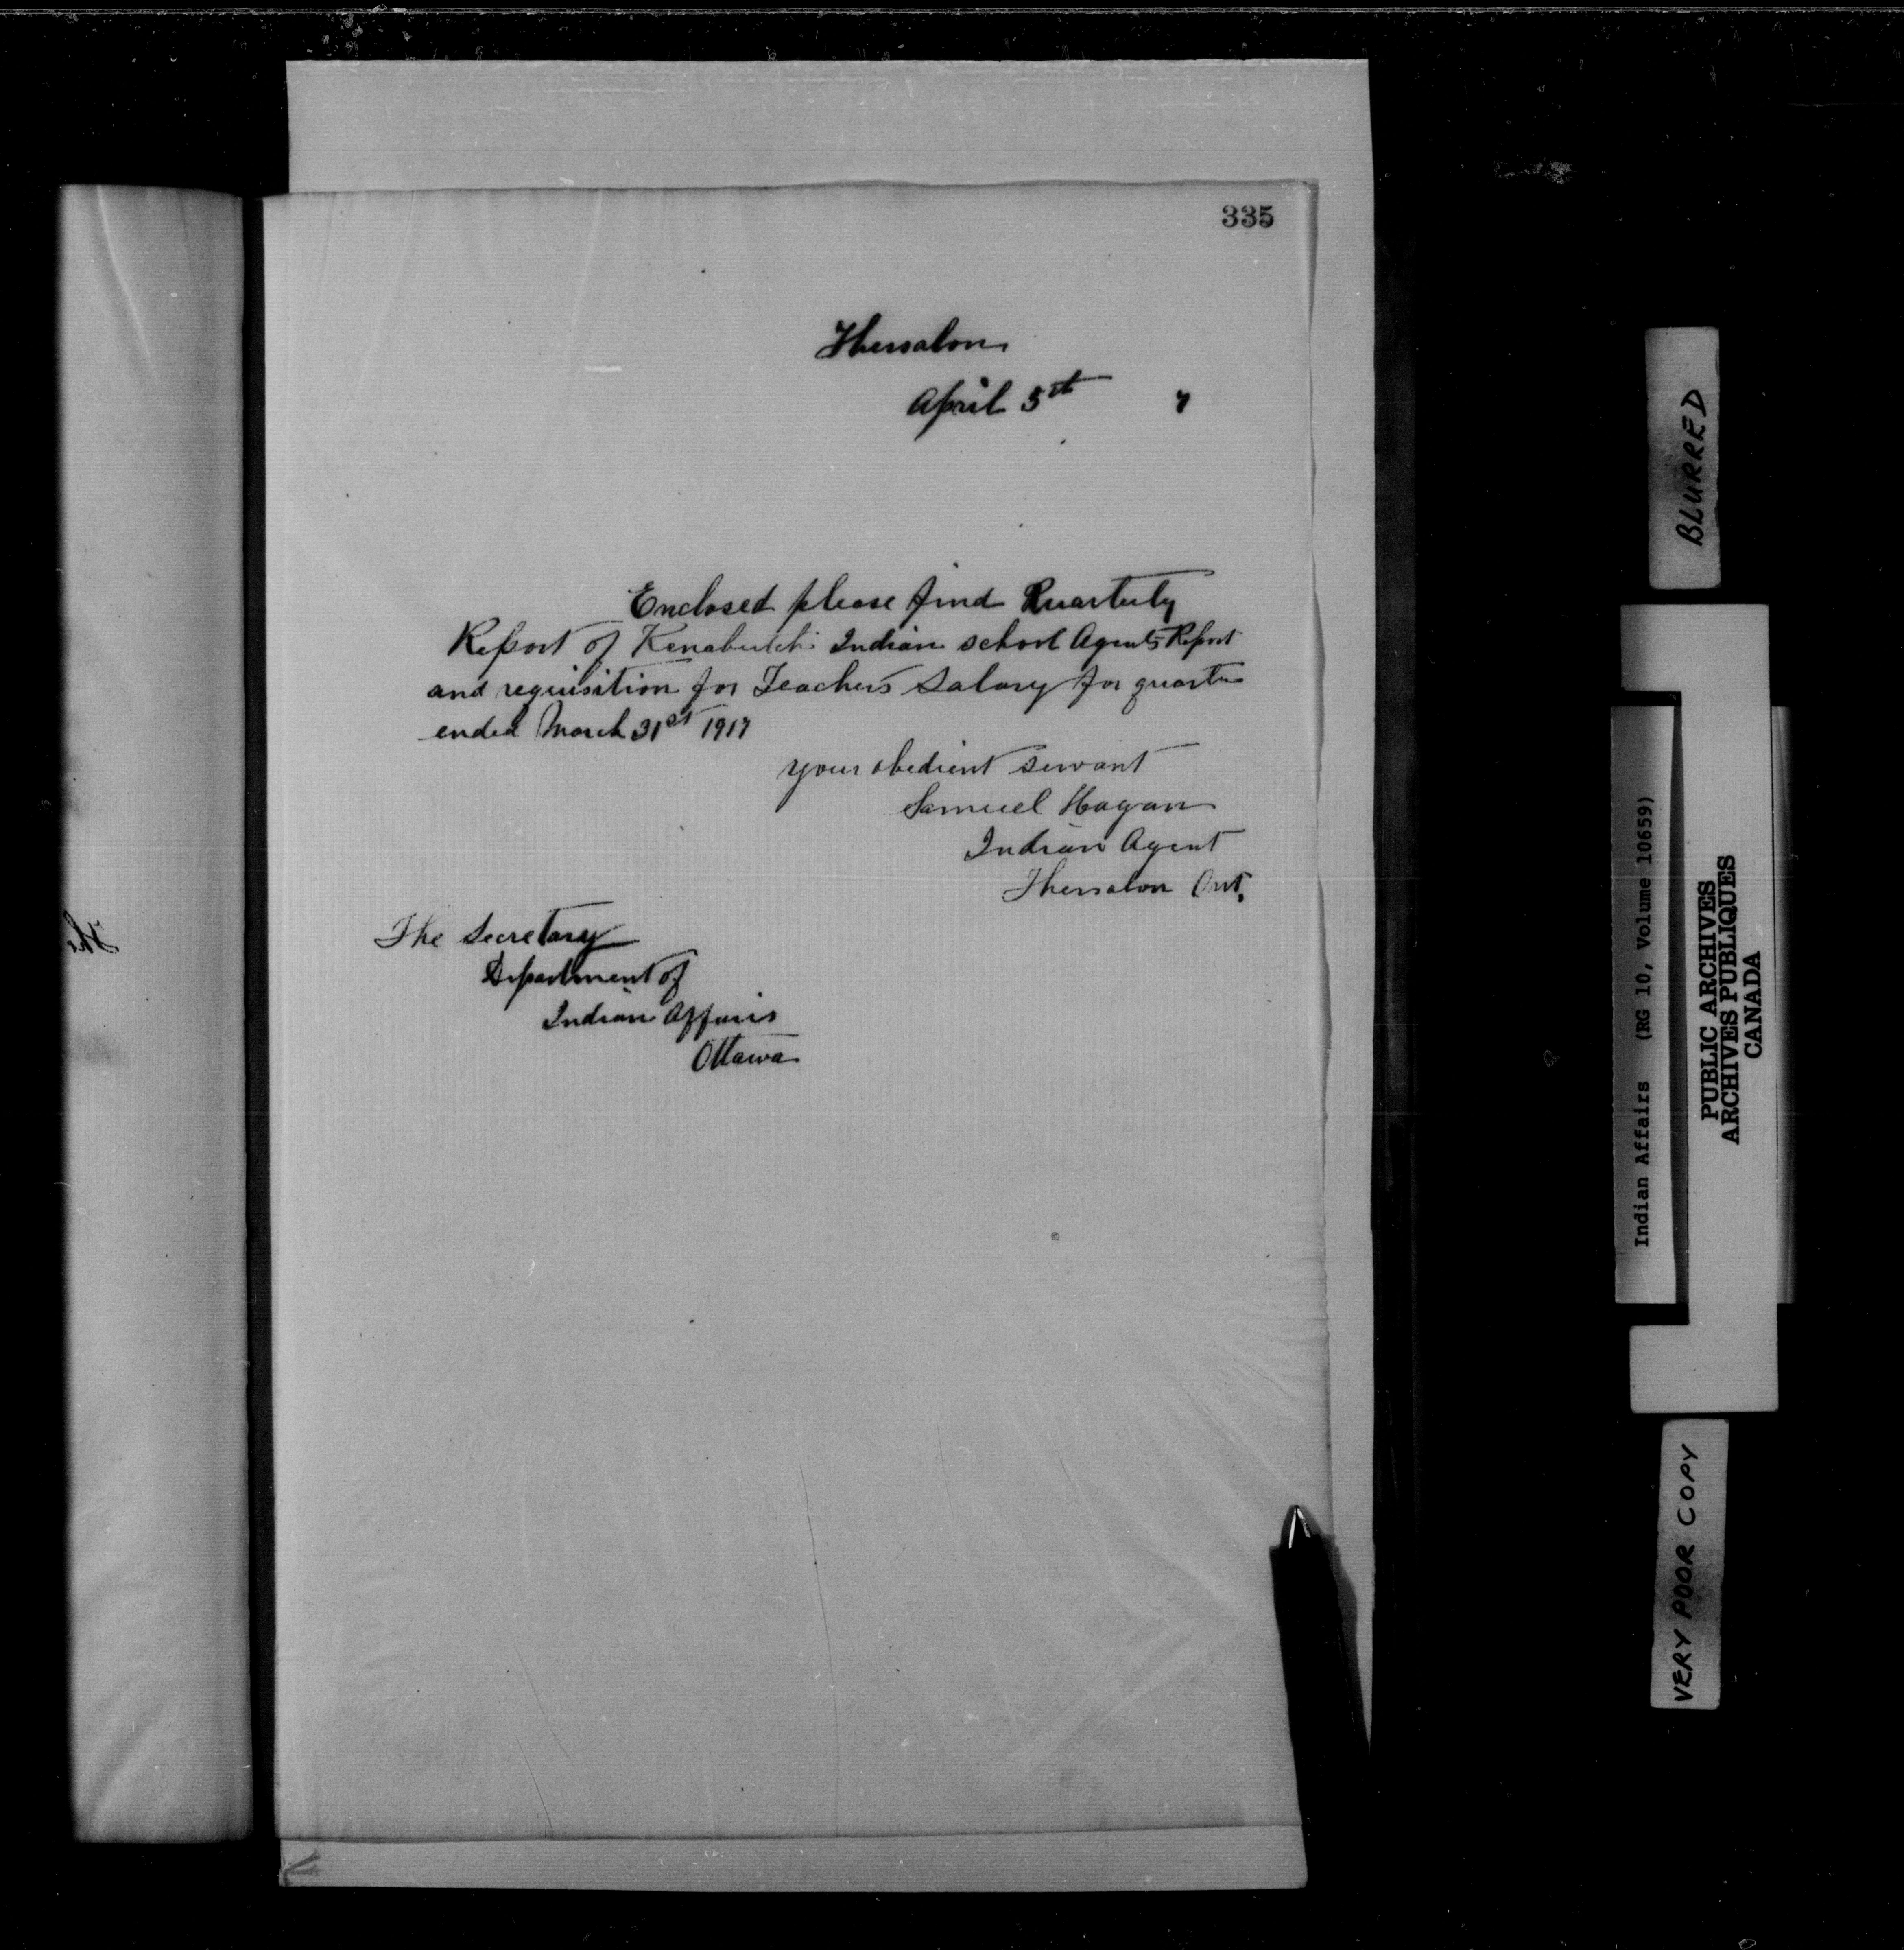 335
Thessalon
April 5th 7
Enclosed please find Quarterly
Report of Kenabutch Indian school Agents Report
and requisition for Teachers Salary for quarter
ended March 31st 1917
your obedient servant
Samuel Hagan
Indian Agent
Thessalon Ont.
The Secretary
Department of
Indian Affairs
Ottawa
The
BLURRED
Indian Affairs (RG 10, Volume 10659)
PUBLIC ARCHIVES
ARCHIVES PUBLIQUES
CANADA
VERY POOR COPY